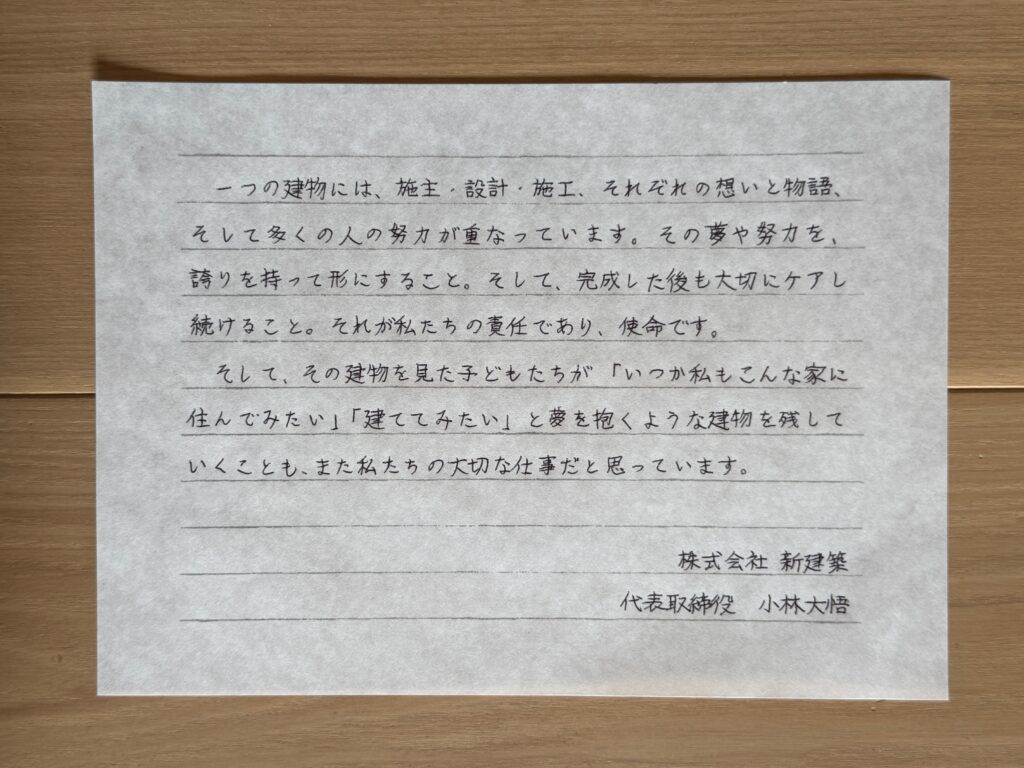 一つの建物には、施主・設計・施工、それぞれの想いと物語、
そして多くの人の努力が重なっています。その夢や努力を、
誇りを持って形にすること。そして、完成した後も大切にケアし
続けること。それが私たちの責任であり、使命です。
そして、その建物を見た子どもたちが「いつか私もこんな家に
住んでみたい」「建ててみたい」と夢を抱くような建物を残して
いくことも、また私たちの大切な仕事だと思っています。
株式会社 新建築
代表取締役 小林大悟